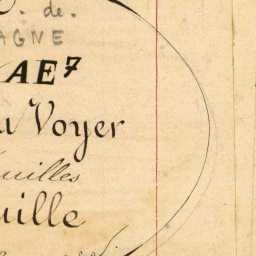 de.
AGNE
AE7
u Voyer
uilles
uille